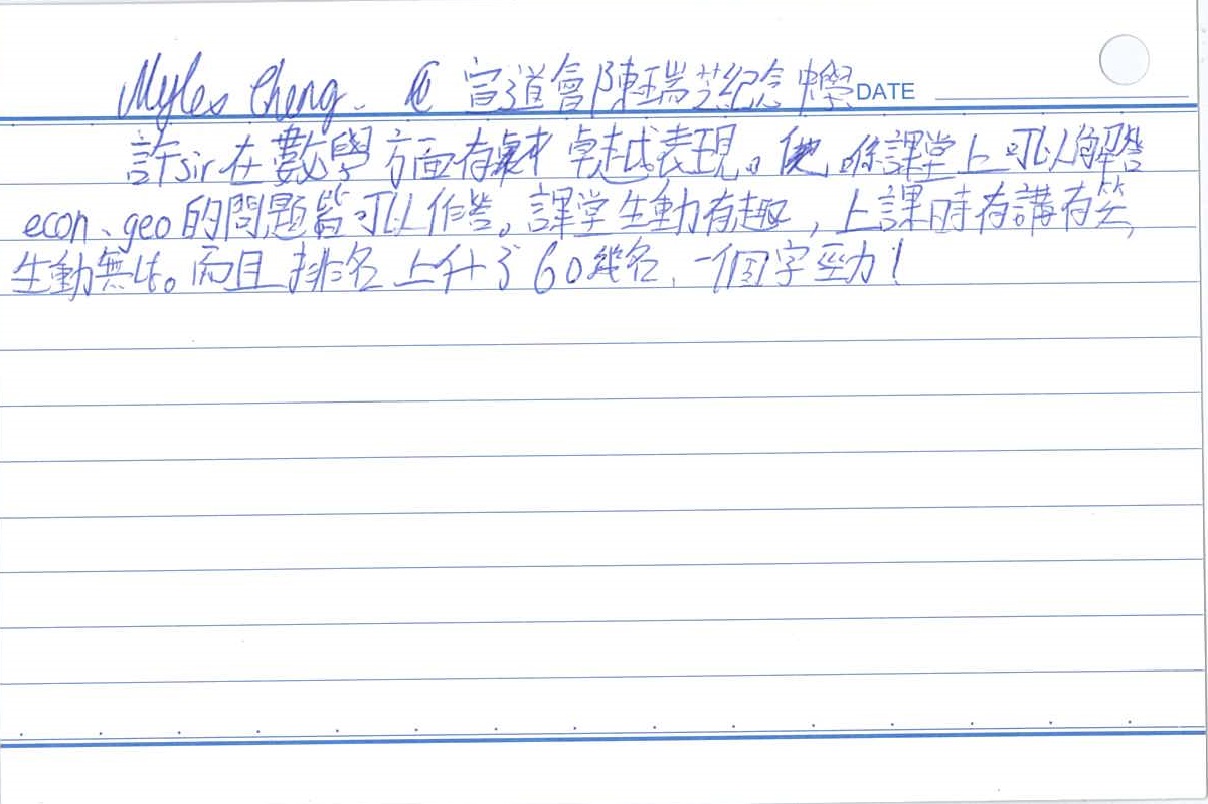 Myles Cheng. @ 宣道會陳瑞芝紀念中學 DATE
許sir在數學方面有卓越表現。他喺課堂上可以解答
econ、geo的問題皆可以作答。課堂生動有趣，上課時有講有笑，
生動無比。而且排名上升了60幾名，一個字勁！